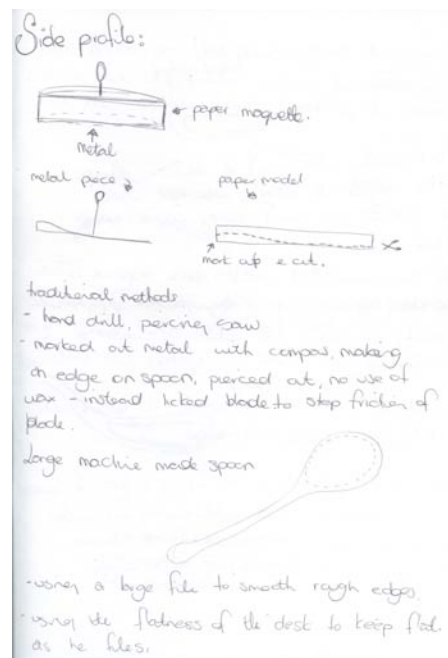 Side profile:
paper maquette.
metal
metal piece
paper model
mark up & cut.
traditional methods
- hand drill, piercing saw
- marked out metal with compas, making
an edge on spoon, pierced out, no use of
wax - instead licked blade to stop friction of
blade.
Large machine made spoon
- using a large file to smooth rough edges.
- using the flatness of the desk to keep flat
as he files.